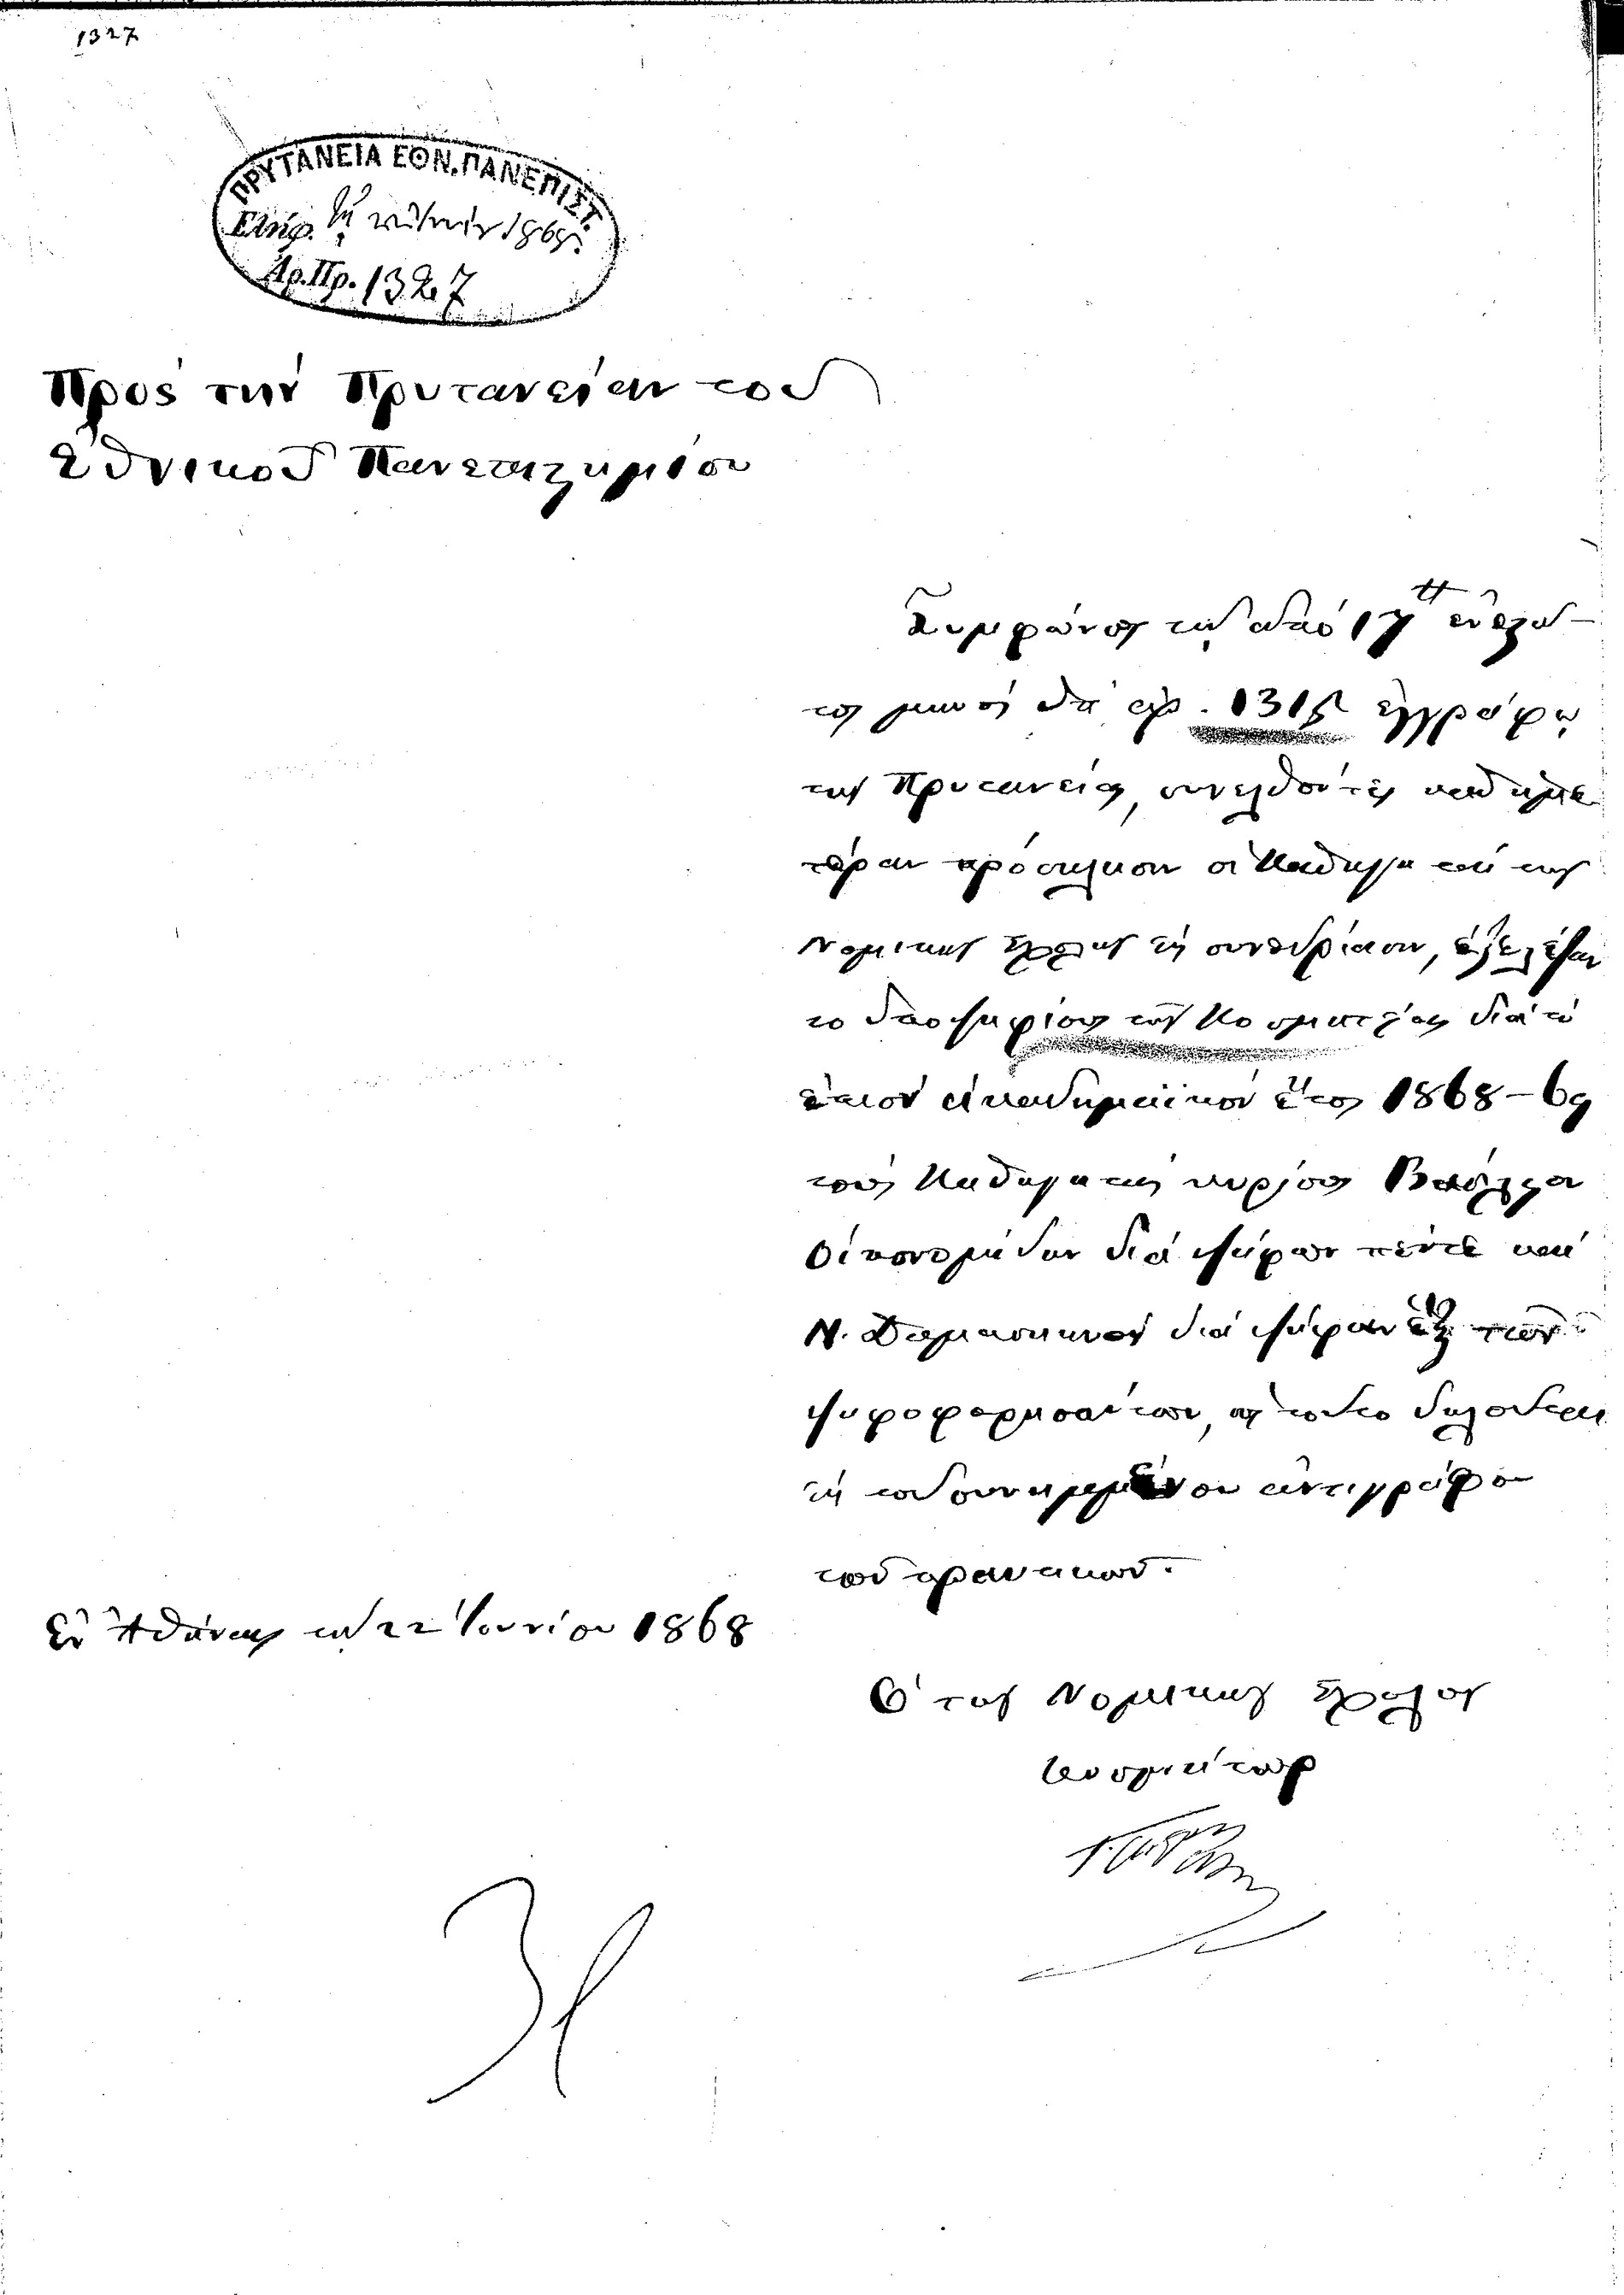 1327
ΠΡΥΤΑΝΕΙΑ ΕΘΝ. ΠΑΝΕΠΙΣΤ.
Ελήφ. τῇ 1868
Ἀρ. Πρ. 1327
Πρὸς τὴν Πρυτανείαν τοῦ
Ἐθνικοῦ Πανεπιστημίου
Συμφώνως τῷ ἀπὸ 17 ἐνεστῶ-
τος μηνὸς ὑπ' ἀρ. 1315 ἐγγράφῳ
τῆς Πρυτανείας, συνελθόντες καθ' ἡμε
τέραν πρόσκλησιν οἱ Καθηγηταὶ τῆς
Νομικῆς Σχολῆς εἰς συνεδρίασιν, ἐξελέξαν
το ὑποψηφίους τῆς Κοσμητείας διὰ τὸ
ἐπιὸν ἀκαδημαϊκὸν ἔτος 1868-69
τοὺς Καθηγητὰς κυρίους Βασίλειον
Οἰκονομίδην διὰ ψήφων πέντε καὶ
Ν. Δαμασκηνὸν διὰ ψήφων ἓξ τῶν
ψηφοφορησάντων, ὡς τοῦτο δηλοῦται
ἐκ τοῦ συνημμένου ἀντιγράφου
τοῦ πρακτικοῦ.
Ἐν Ἀθήναις τῇ 22 Ἰουνίου 1868
Ὁ τῆς Νομικῆς Σχολῆς
Κοσμήτωρ